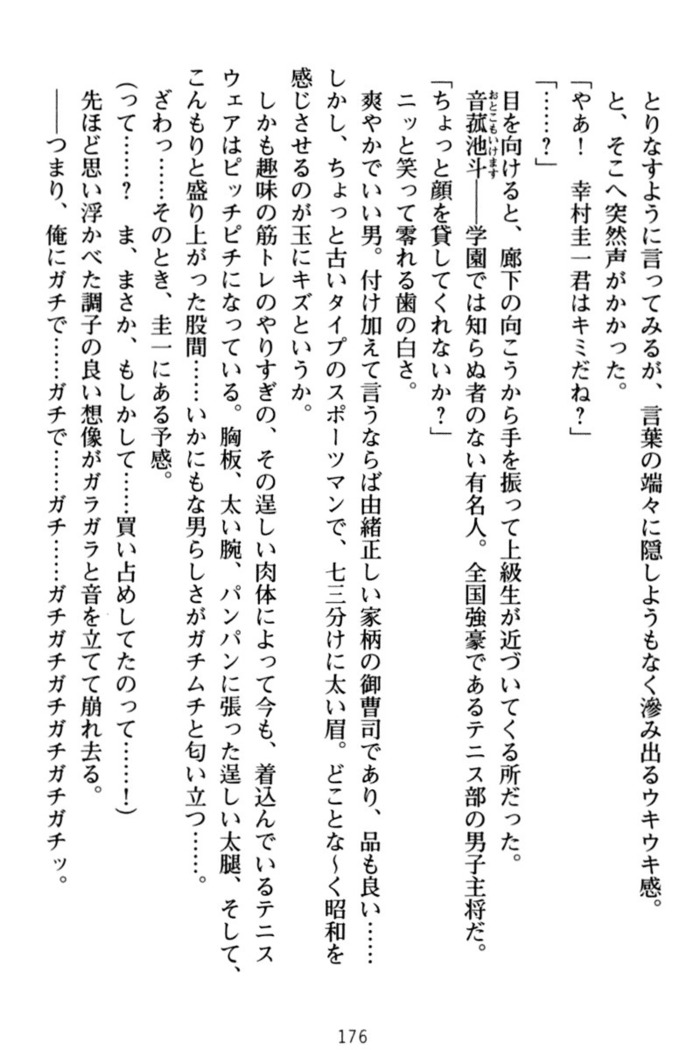 とりなすように言ってみるが、言葉の端々に隠しようもなく滲み出るウキウキ感。
と、そこへ突然声がかかった。
「やぁ！　幸村圭一君はキミだね？」
「……？」
目を向けると、廊下の向こうから手を振って上級生が近づいてくる所だった。
音菰池斗――学園では知らぬ者のない有名人。全国強豪であるテニス部の男子主将だ。
おとこもいけます
「ちょっと顔を貸してくれないか？」
ニッと笑って零れる歯の白さ。
爽やかでいい男。付け加えて言うならば由緒正しい家柄の御曹司であり、品も良い……
しかし、ちょっと古いタイプのスポーツマンで、七三分けに太い眉。どことな～く昭和を
感じさせるのが玉にキズというか。
しかも趣味の筋トレのやりすぎの、その逞しい肉体によって今も、着込んでいるテニス
ウェアはピッチピチになっている。胸板、太い腕、パンパンに張った逞しい太腿、そして、
こんもりと盛り上がった股間……いかにもな男らしさがガチムチと匂い立つ……。
ざわっ……そのとき、圭一にある予感。
（って……？　ま、まさか、もしかして……買い占めしてたのって……！）
先ほど思い浮かべた調子の良い想像がガラガラと音を立てて崩れ去る。
――つまり、俺にガチで……ガチで……ガチ……ガチガチガチガチガチガチッ。
176